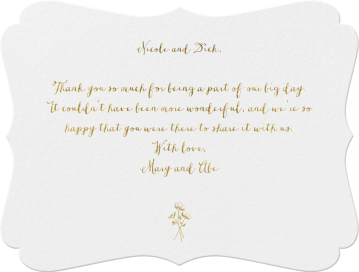 Nicole and Dick,
Thank you so much for being a part of our big day.
It couldn't have been more wonderful, and we're so
happy that you were there to share it with us.
With love,
Mary and Abe